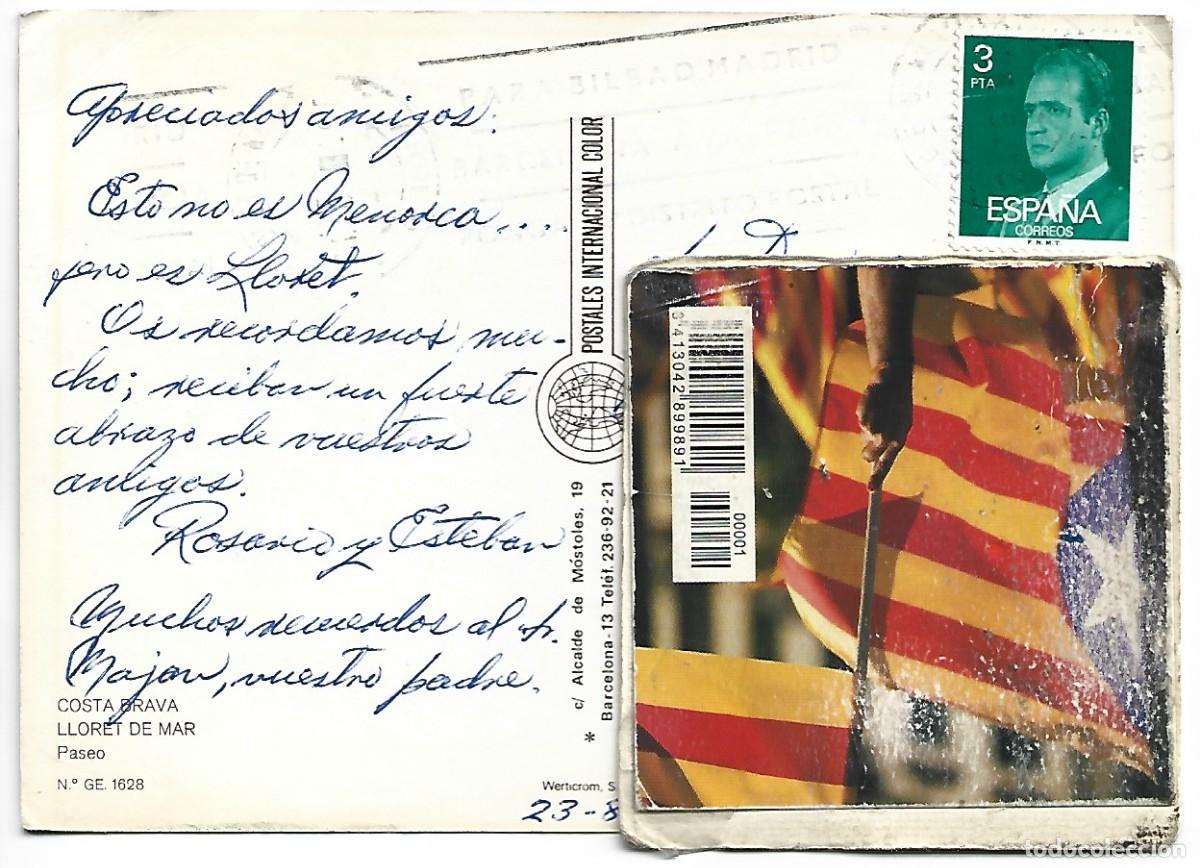 Apreciados amigos:
Esto no es Menorca....
pero es Lloret.
Os recordamos mu-
cho; reciban un fuerte
abrazo de vuestros
amigos.
Rosario y Esteban
Muchos recuerdos al Sr.
Majan, vuestro padre.
COSTA BRAVA
LLORET DE MAR
Paseo
N.° GE. 1628
POSTALES INTERNACIONAL COLOR
* c/ Alcalde de Móstoles, 19
Barcelona-13 Teléf. 236-92-21
Werticrom, S
23-8
BILBAO MADRID
DISTRITO POSTAL
3
PTA
ESPAÑA
CORREOS
F.N.M.T.
3 413042 899891
00001
todocoleccion.net